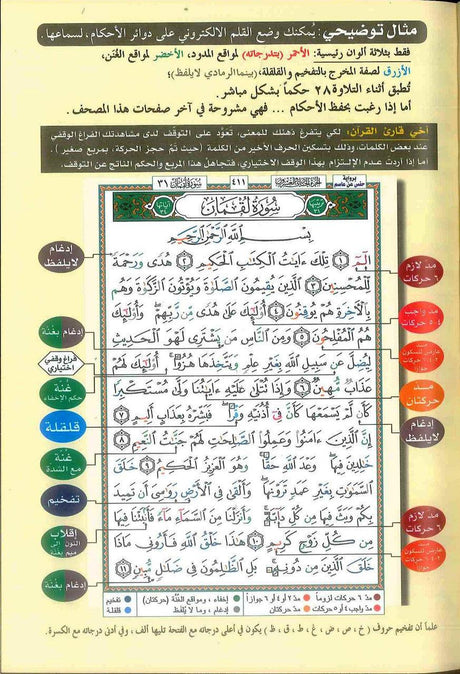 مثال توضيحي: يُمكنك وضع القلم الالكتروني على دوائر الأحكام، لسماعها.
فقط بثلاثة ألوان رئيسية: الأحمر (بتدرجاته) لمواقع المدود، الأخضر لمواقع الغُنَن،
الأزرق لصفة المخرج بالتفخيم والقلقلة، (بينما الرمادي لا يلفظ)
تُطبق أثناء التلاوة ٢٨ حكماً بشكل مباشر.
أما إذا رغبت بحفظ الأحكام ... فهي مشروحة في آخر صفحات هذا المصحف.
أخي قارئ القرآن: لكي يتفرغ ذهنك للمعنى، تعوَّد على التوقف لدى مشاهدتك الفراغ الوقفي
عند بعض الكلمات، وذلك بتسكين الحرف الأخير من الكلمة (حيث تمَّ حجز الحركة، بمربع صغير).
أما إذا أردت عدم الإلتزام بهذا الوقف الاختياري، فتجاهل هذا المربع والحكم الناتج عن التوقف.
برواية
حفص عن عاصم
٤١١
سورة لقمان ٣١
سُورَةُ لُقْمَان
بِسْمِ اللَّهِ الرَّحْمَٰنِ الرَّحِيمِ
الٓمٓ ١ تِلْكَ ءَايَٰتُ الْكِتَٰبِ الْحَكِيمِ ٢ هُدًى وَرَحْمَةً
لِّلْمُحْسِنِينَ ٣ الَّذِينَ يُقِيمُونَ الصَّلَوٰةَ وَيُؤْتُونَ الزَّكَوٰةَ وَهُم
بِالْءَاخِرَةِ هُمْ يُوقِنُونَ ٤ أُوْلَٰٓئِكَ عَلَىٰ هُدًى مِّن رَّبِّهِمْ وَأُوْلَٰٓئِكَ
هُمُ الْمُفْلِحُونَ ٥ وَمِنَ النَّاسِ مَن يَشْتَرِى لَهْوَ الْحَدِيثِ
لِيُضِلَّ عَن سَبِيلِ اللَّهِ بِغَيْرِ عِلْمٍ وَيَتَّخِذَهَا هُزُوًا أُوْلَٰٓئِكَ لَهُمْ
عَذَابٌ مُّهِينٌ ٦ وَإِذَا تُتْلَىٰ عَلَيْهِ ءَايَٰتُنَا وَلَّىٰ مُسْتَكْبِرًا
كَأَن لَّمْ يَسْمَعْهَا كَأَنَّ فِىٓ أُذُنَيْهِ وَقْرًا فَبَشِّرْهُ بِعَذَابٍ أَلِيمٍ ٧
إِنَّ الَّذِينَ ءَامَنُوا وَعَمِلُوا الصَّٰلِحَٰتِ لَهُمْ جَنَّٰتُ النَّعِيمِ ٨
خَٰلِدِينَ فِيهَا وَعْدَ اللَّهِ حَقًّا وَهُوَ الْعَزِيزُ الْحَكِيمُ ٩ خَلَقَ
السَّمَٰوَٰتِ بِغَيْرِ عَمَدٍ تَرَوْنَهَا وَأَلْقَىٰ فِى الْأَرْضِ رَوَٰسِىَ أَن تَمِيدَ
بِكُمْ وَبَثَّ فِيهَا مِن كُلِّ دَآبَّةٍ وَأَنزَلْنَا مِنَ السَّمَآءِ مَآءً فَأَنۢبَتْنَا فِيهَا
مِن كُلِّ زَوْجٍ كَرِيمٍ ١٠ هَٰذَا خَلْقُ اللَّهِ فَأَرُونِى مَاذَا
خَلَقَ الَّذِينَ مِن دُونِهِ بَلِ الظَّٰلِمُونَ فِى ضَلَٰلٍ مُّبِينٍ ١١
إدغام
لا يلفظ
إدغام بغنة
فراغ وقفي
اختياري
غنة
حكم الإخفاء
قلقلة
غنة
مع الشدة
تفخيم
إقلاب
النون إلى
ميم بغنة
إدغام بغنة
مد لازم
٦ حركات
مد واجب
٤-٥ حركات
عارض للسكون
جوازاً
مد
حركتان
إدغام
لا يلفظ
مد لازم
٦ حركات
عارض للسكون
جوازاً
مد ٦ حركات لزوماً مد ٢ أو ٤ أو ٦ جوازاً إخفاء، ومواقع الغُنَّة (حركتان) تفخيم
مد واجب ٤ أو ٥ حركات مد حركتان إدغام، وما لا يُلفَظ قلقلة
علماً أن تفخيم حروف (خ ، ص ، ض ، غ ، ط ، ق ، ظ) يكون في أعلى درجاته مع الفتحة تليها ألف، وفي أدنى درجاته مع الكسرة.